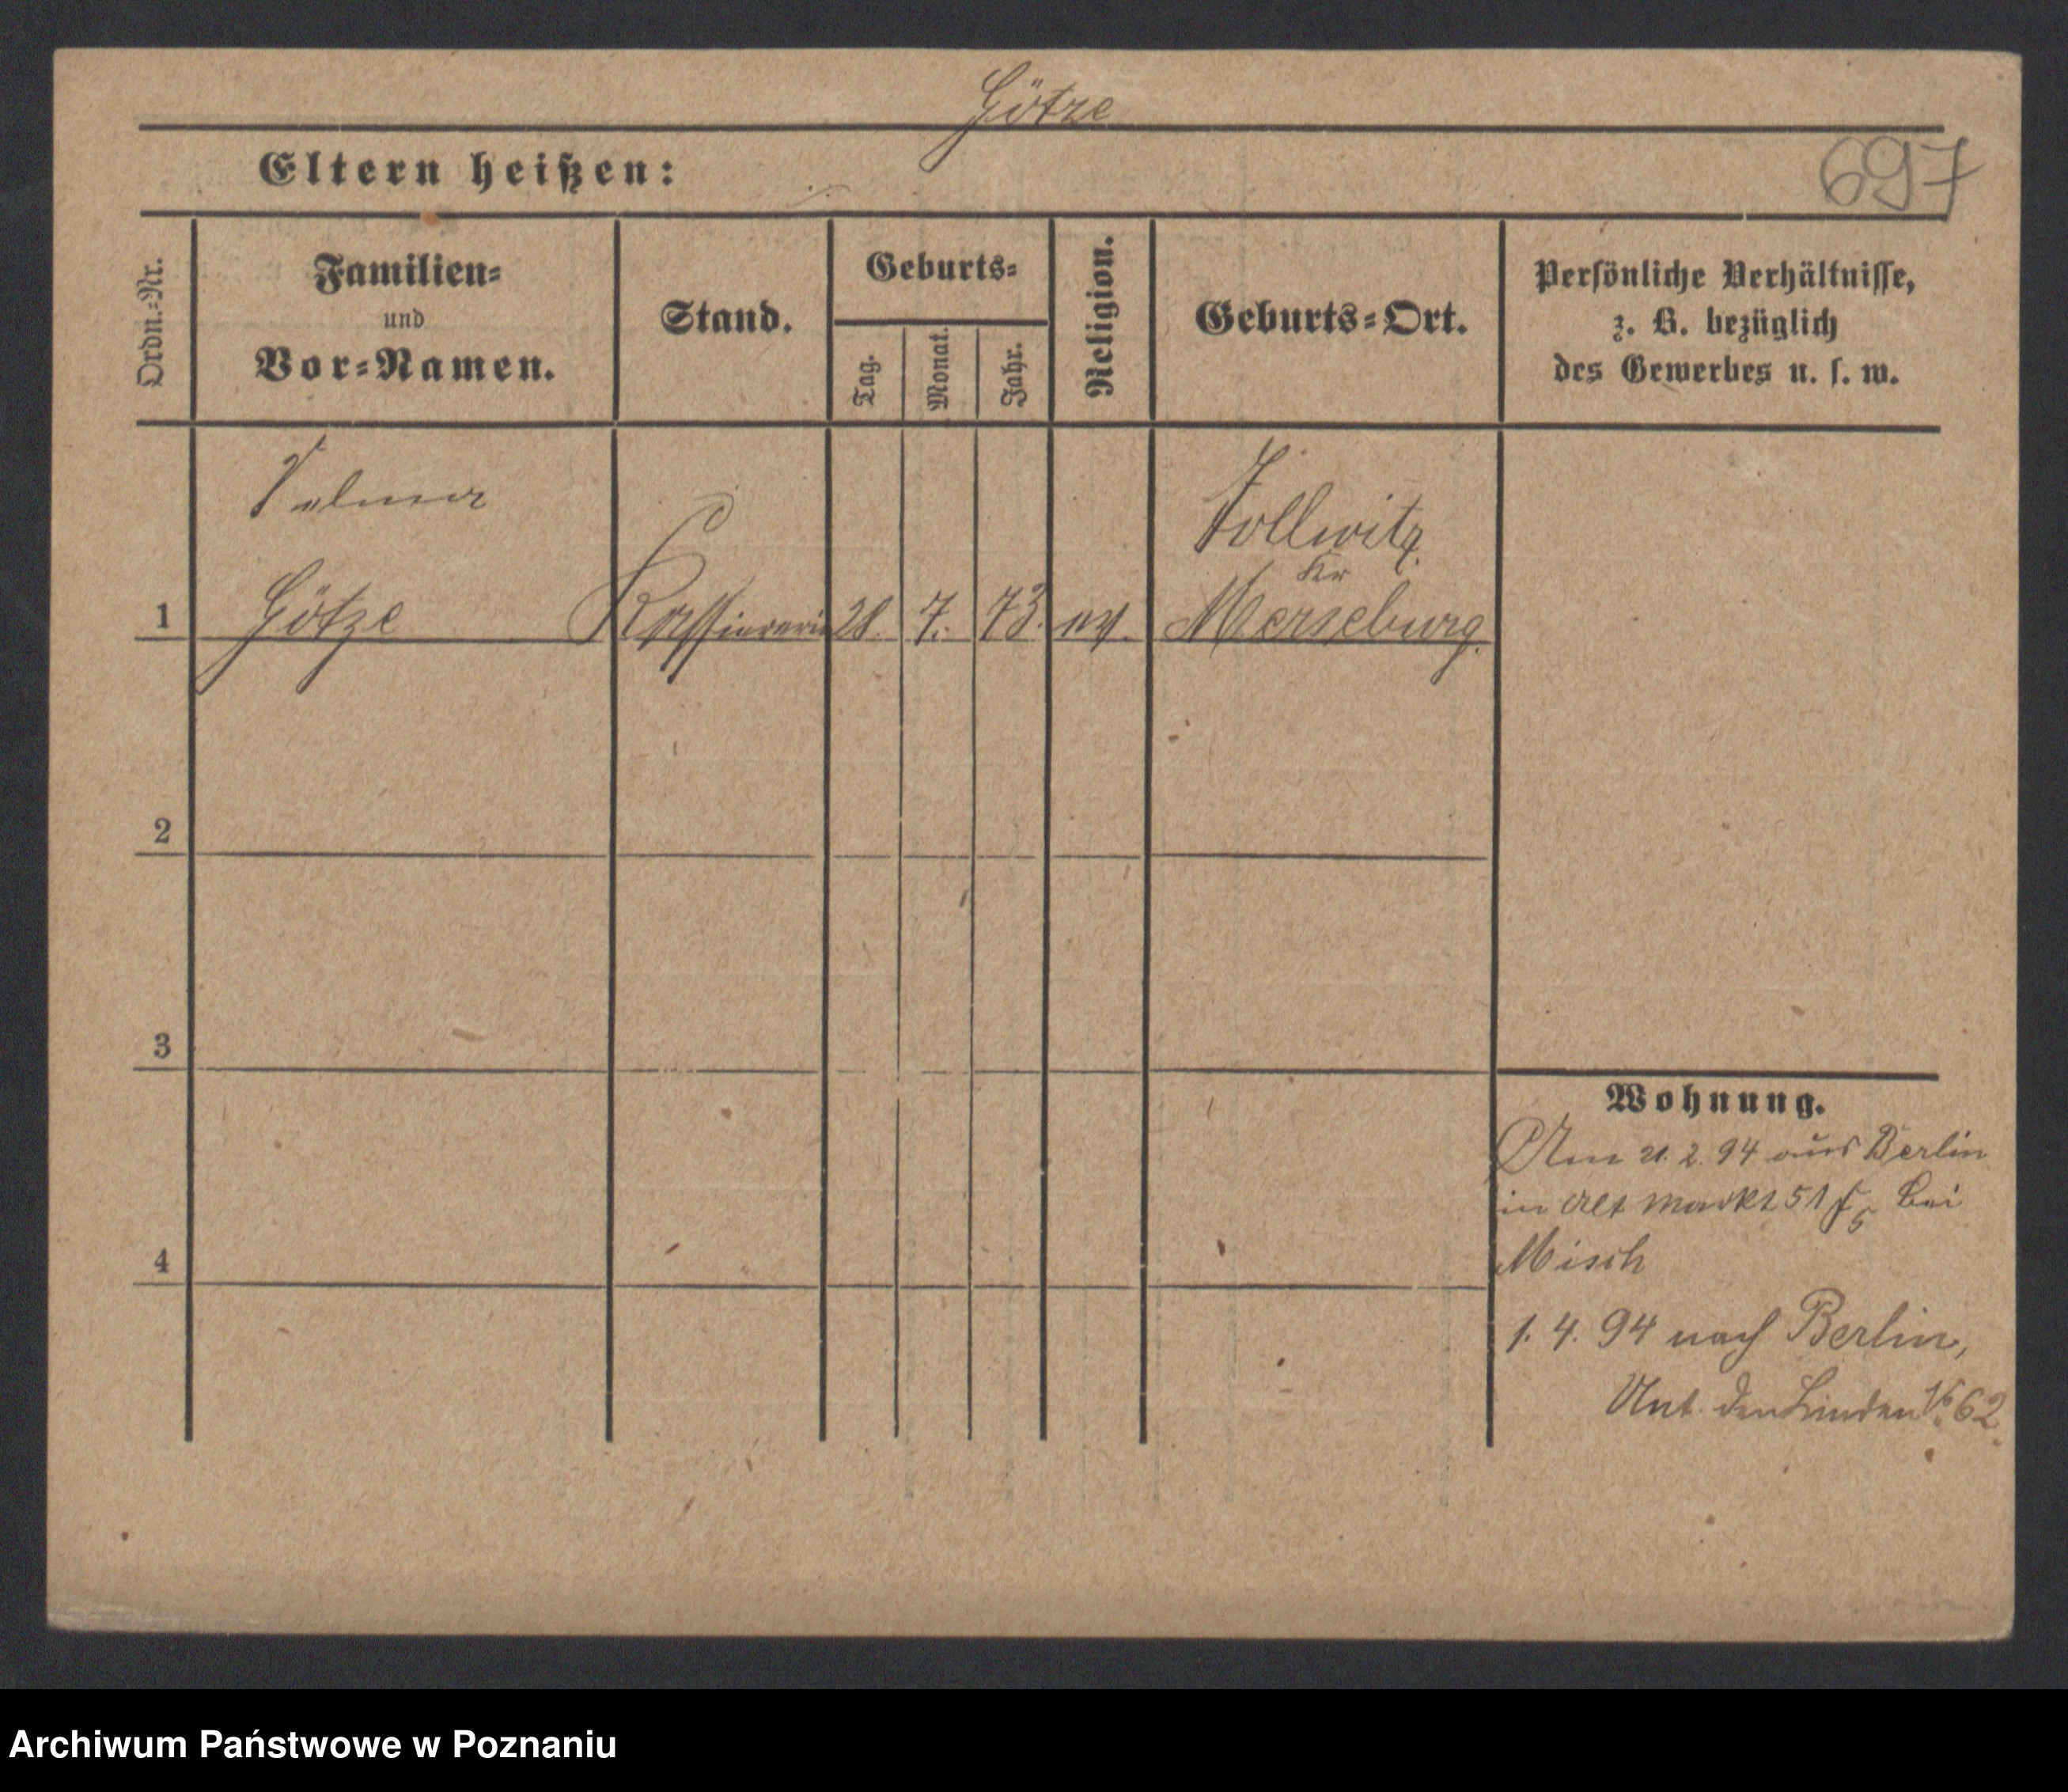 Götze
Eltern heißen:
697
Ordn.=Nr.
Familien=
und
Vor=Namen.
Stand.
Geburts=
Tag.
Monat.
Jahr.
Religion.
Geburts=Ort.
Persönliche Verhältnisse,
z. B. bezüglich
des Gewerbes u. s. w.
1
Götze
Kassiererin
28.
7.
73.
ev.
Kr
Merseburg.
2
3
4
Wohnung.
Am 21. 2. 94 aus Berlin
in Alt Markt 51 bei
Misch
1. 4. 94 nach Berlin,
Unt. den Linden No 62.
Archiwum Państwowe w Poznaniu